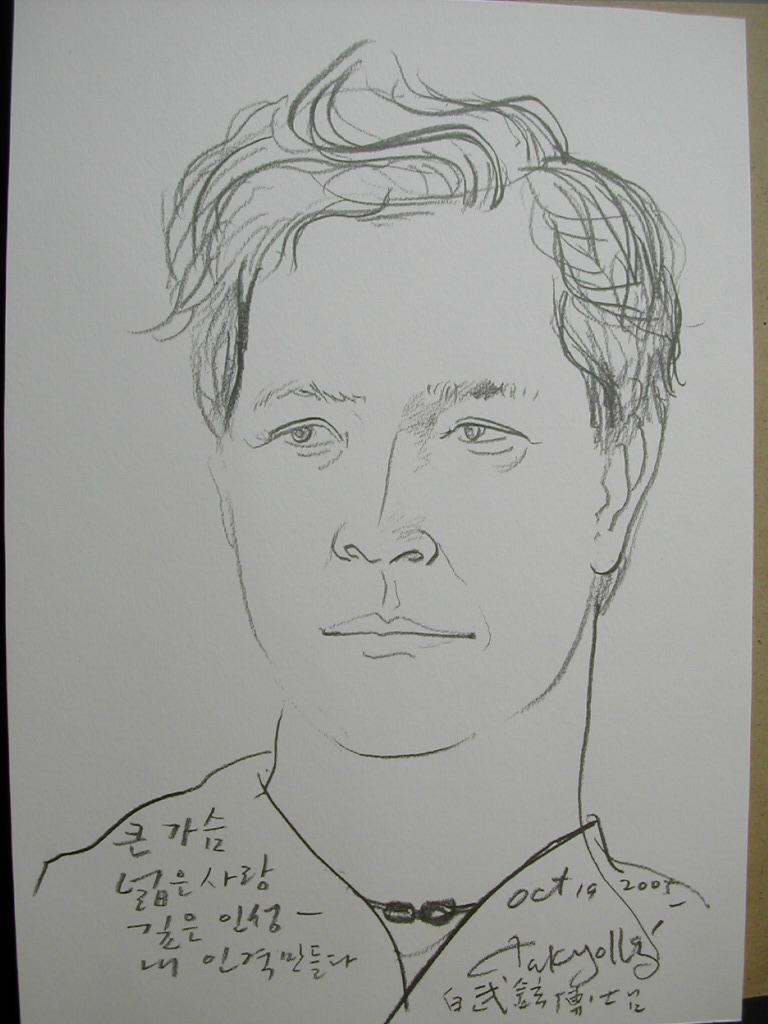 큰 가슴
넓은 사랑
깊은 인성 -
내 인격만들다
oct 19 2005
白武鉉博士님